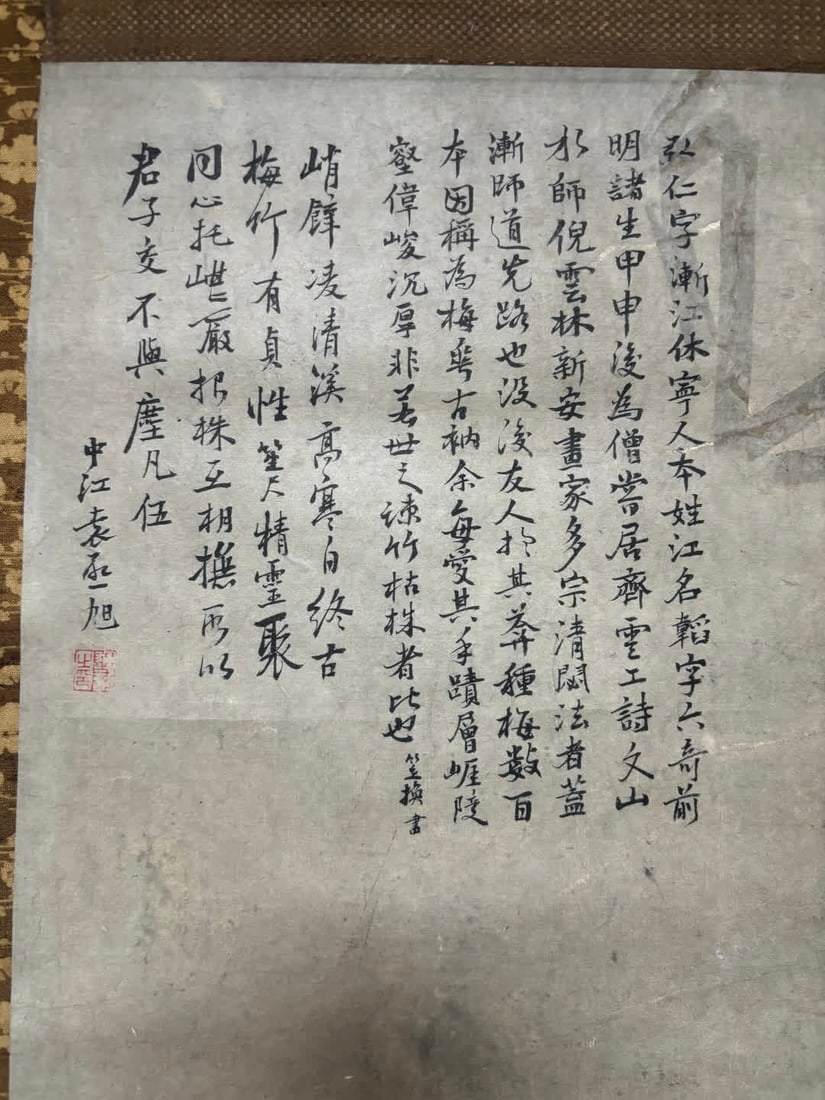 弘仁字漸江休寧人本姓江名韜字六奇前
明諸生甲申後為僧嘗居齊雲工詩文山
水師倪雲林新安畫家多宗清閟法者蓋
漸師道先路也沒後友人於其葬種梅數百
本因稱為梅華古衲余每愛其手蹟層崕陵
壑偉峻沉厚非若世之疎竹枯株者比也
峭壁凌清溪高寒自終古
梅竹有貞性笠尺精靈聚
同心托巖根株互相撫所以
君子交不與塵凡伍
中江袁旭